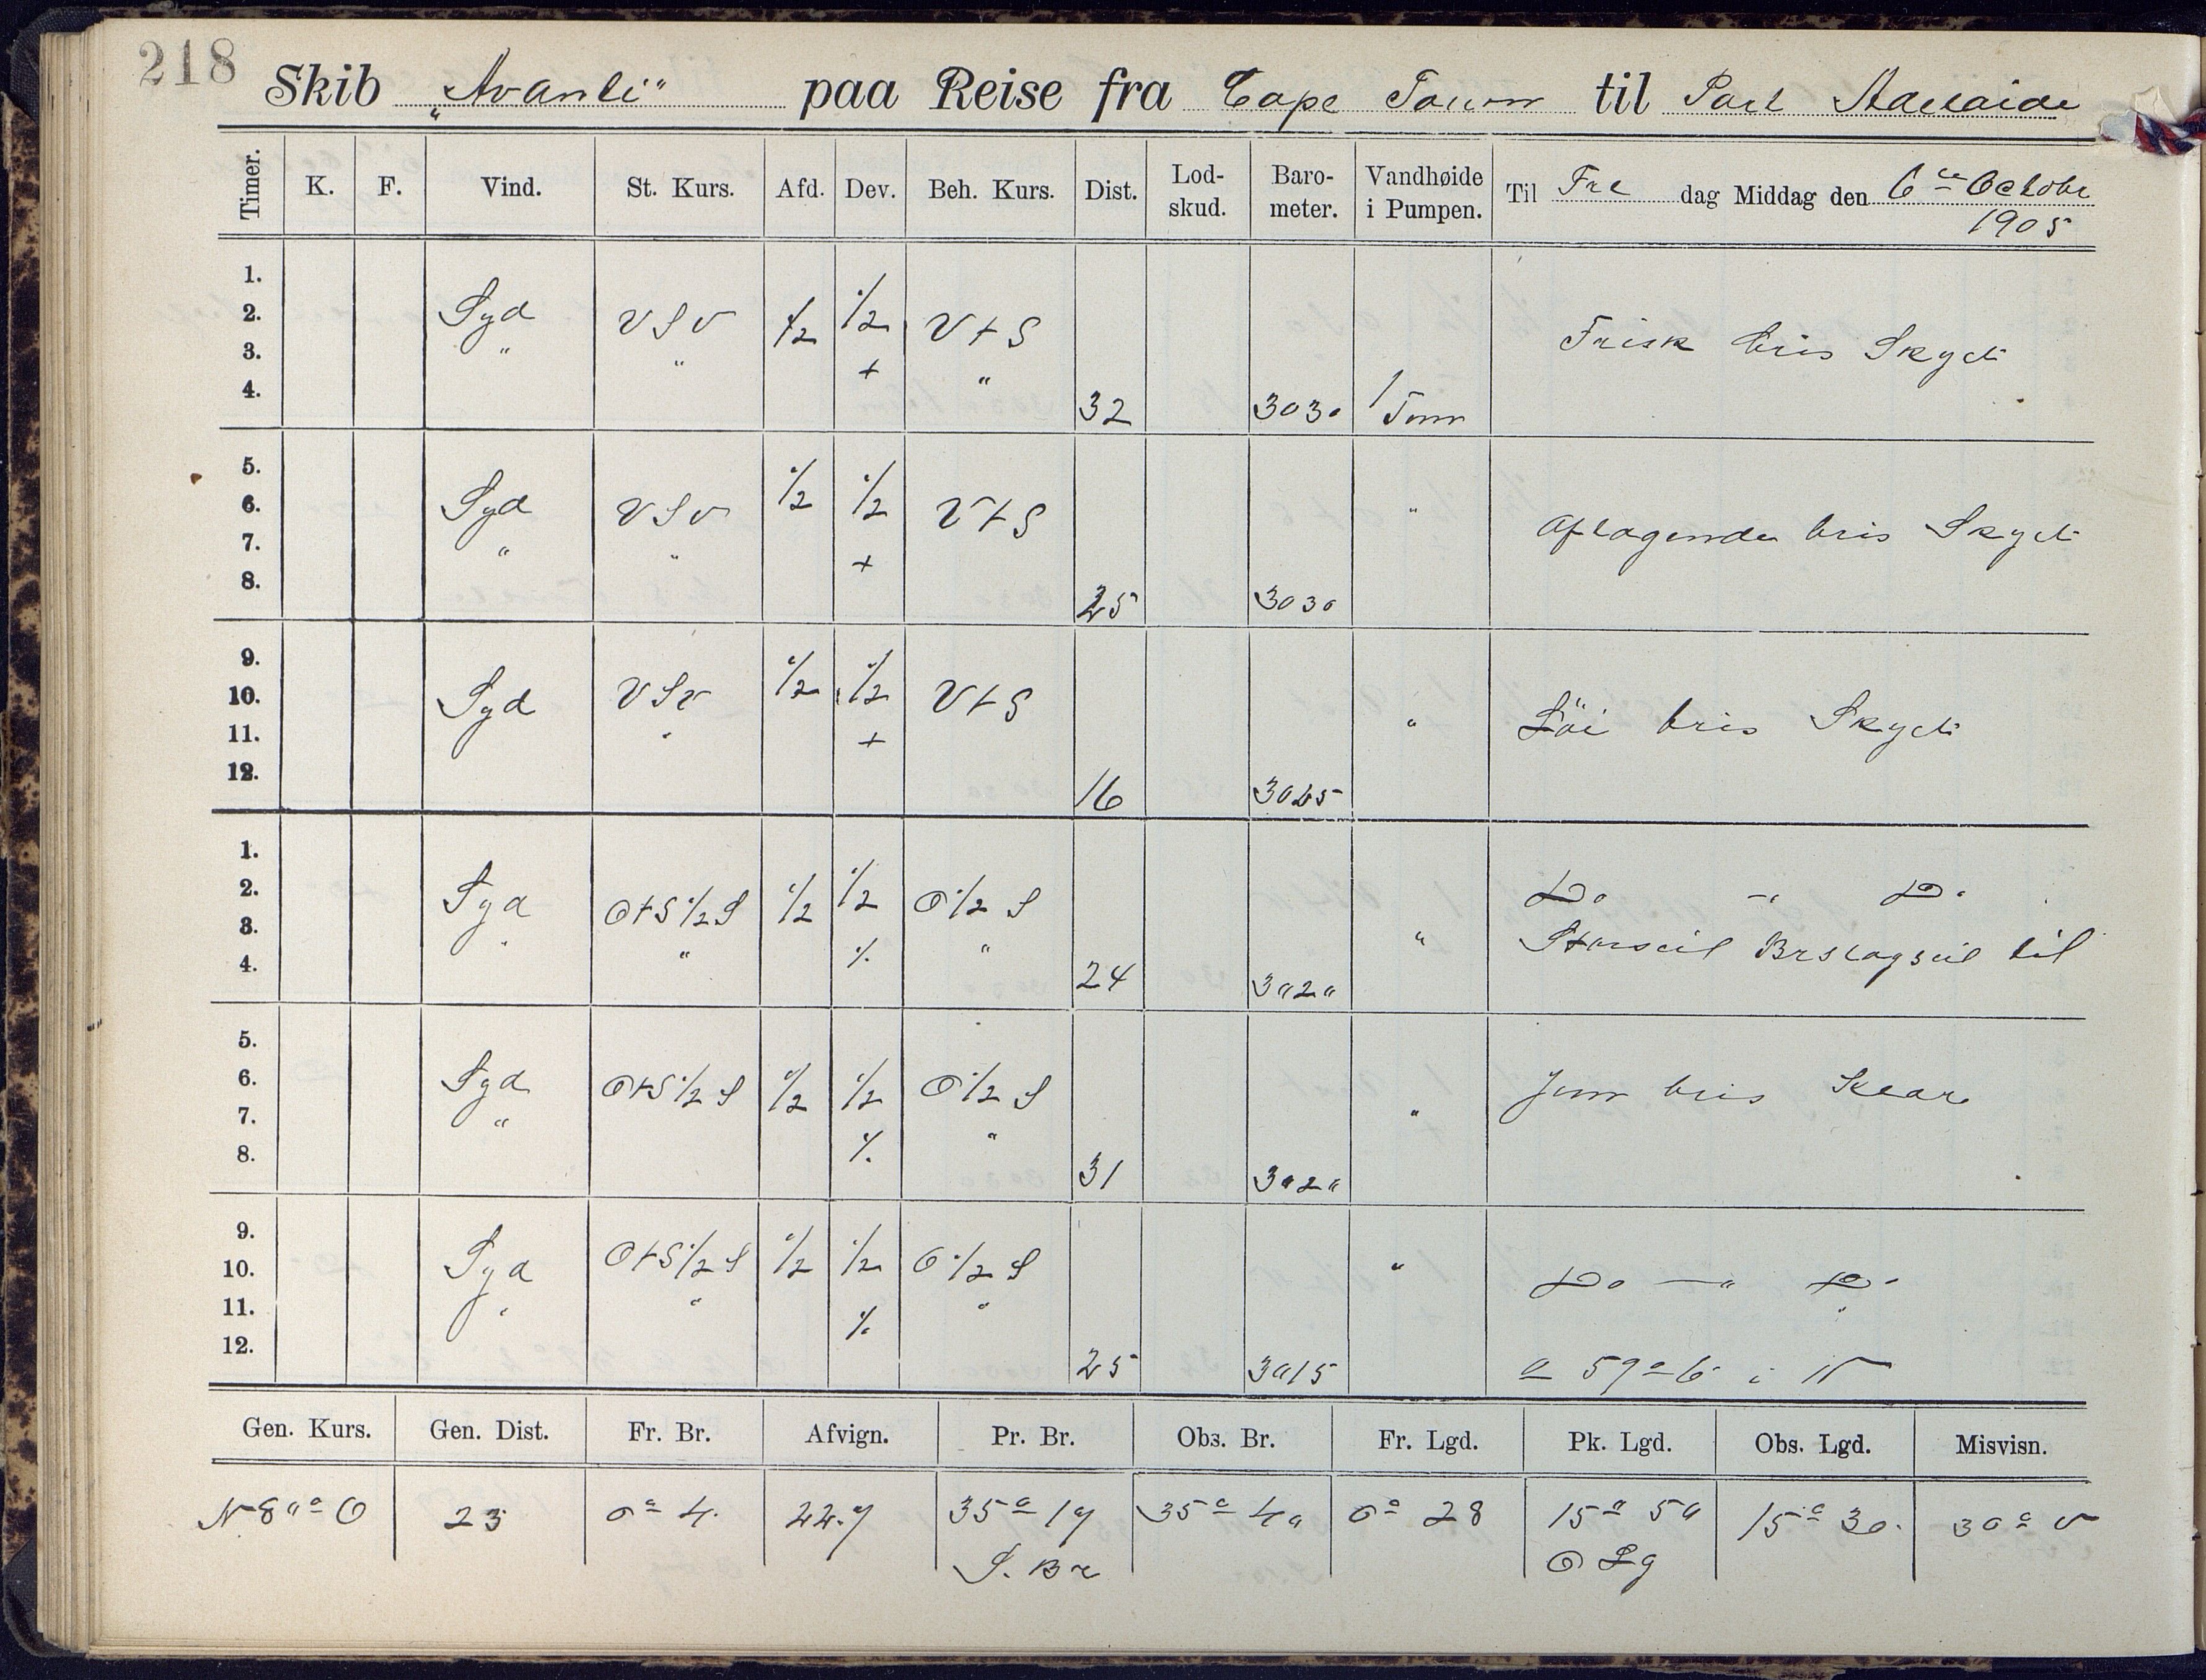 218
Skib „Avanti“ paa Reise fra Cape Town til Port Adelaide
Timer. K. F. Vind. St. Kurs. Afd. Dev. Beh. Kurs. Dist. Lod-skud. Baro-meter. Vandhøide i Pumpen. Til Fre dag Middag den 6te October
1905
1.
2. Syd VSV 1/2 1/2 V t S Frisk bris Skyet
3. " " + "
4. 32 3030 1 Tom
5.
6. Syd VSV 1/2 1/2 V t S " Aftagende bris Skyet
7. " " +
8. 25 3030
9.
10. Syd VSV 1/2 1/2 V t S " Löi bris Skyet
11. " +
12. 16 3025
1.
2. Syd O t S 1/2 S 1/2 1/2 O 1/2 S Do " Do
3. " " % " " Storseil Brstagseil til
4. 24 3020
5.
6. Syd O t S 1/2 S 1/2 1/2 O 1/2 S Jevn bris Klar
7. " % " "
8. 31 3020
9.
10. Syd O t S 1/2 S 1/2 1/2 O 1/2 S " Do — " Do
11. " " % "
12. 25 3015 a 59° 6
Gen. Kurs. Gen. Dist. Fr. Br. Afvign. Pr. Br. Obs. Br. Fr. Lgd. Pk. Lgd. Obs. Lgd. Misvisn.
N 80° O 23 0° 4 22.7 35° 17 35° 40 0° 28 15° 50 15° 30 30° V
S. Br O Lg